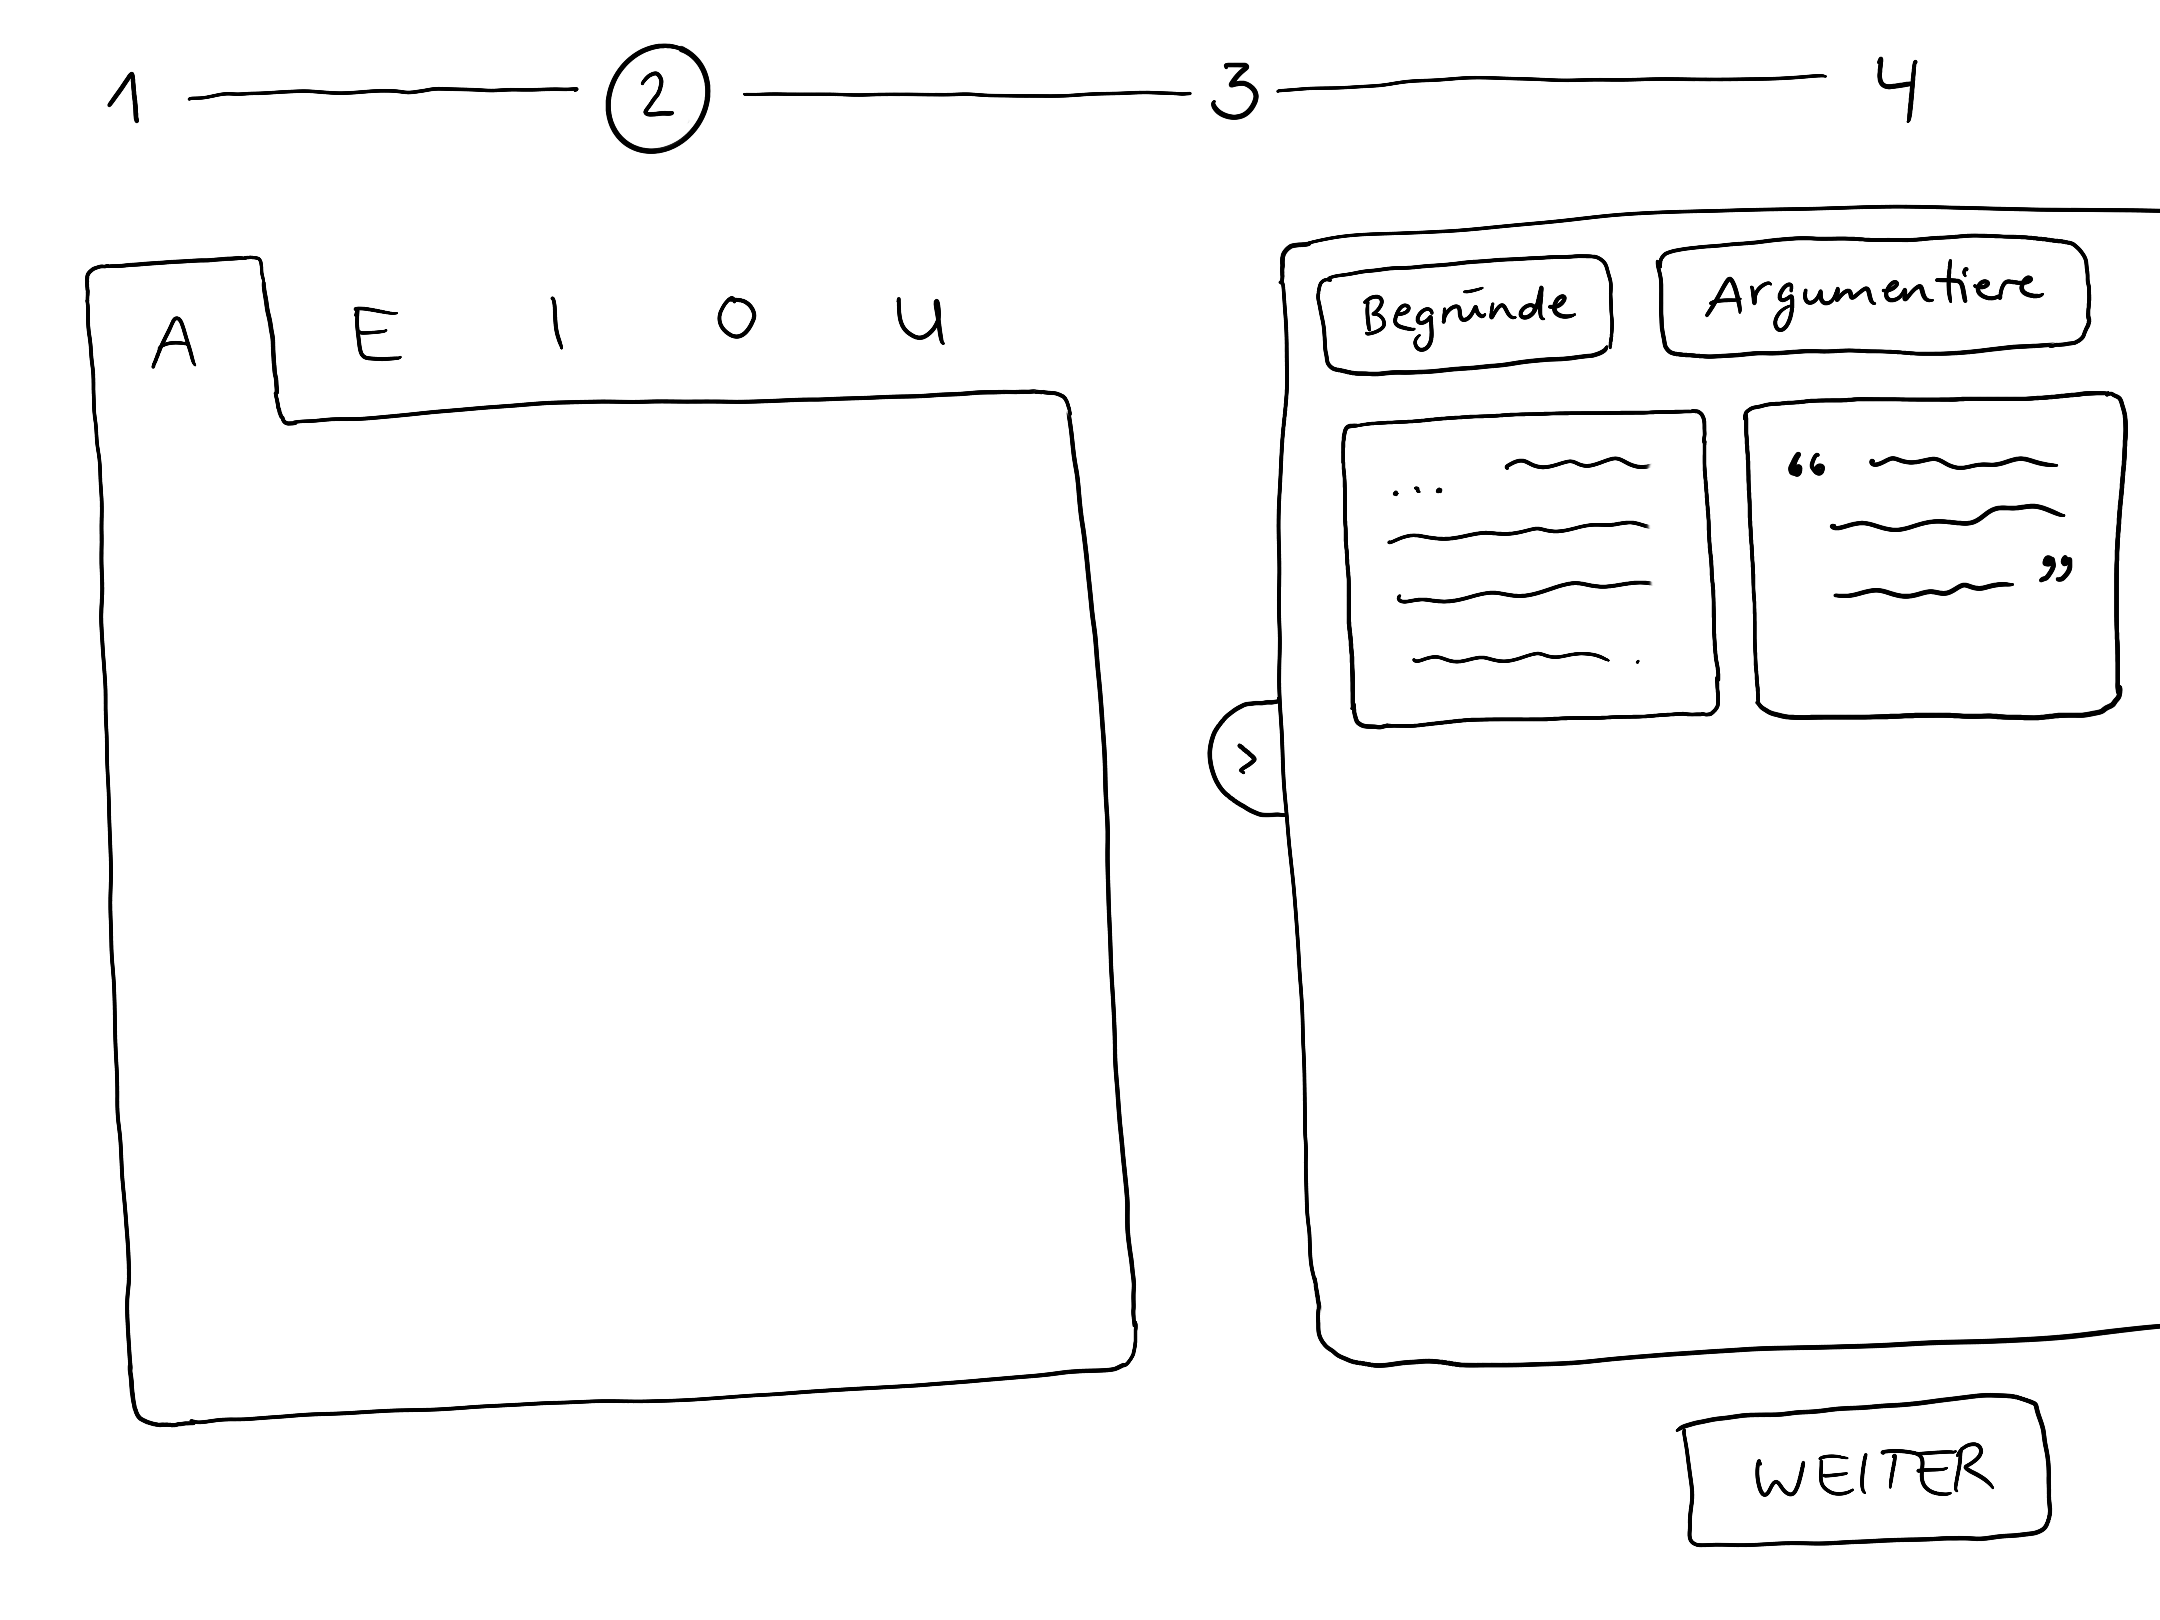 1 2 3 4
A E I O U
Begründe
Argumentiere
...
“
”
>
WEITER